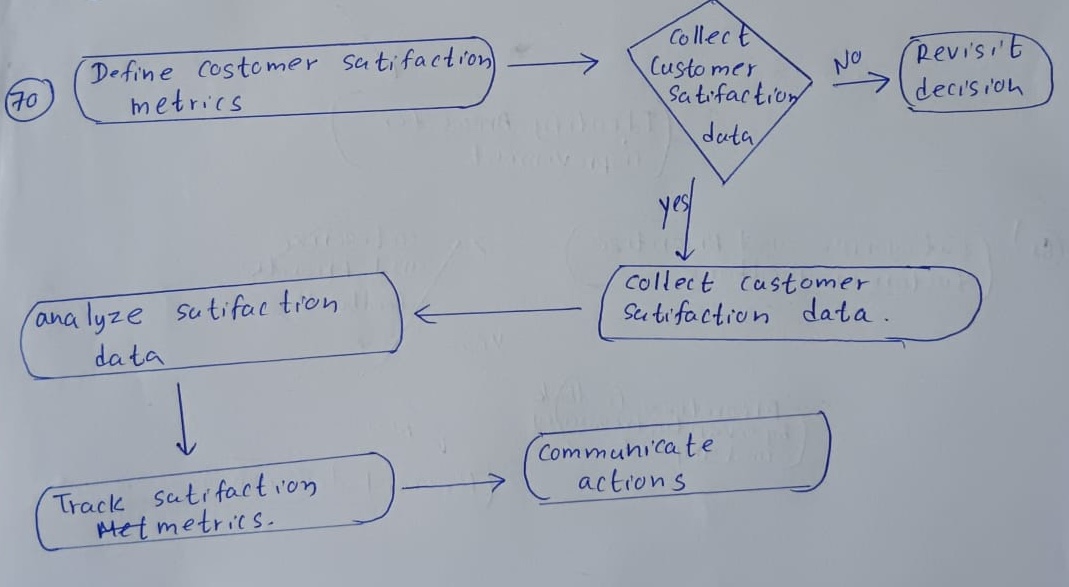 70
Define costomer satifaction
metrics
Collect
Customer
satifaction
data
No
Revisit
decision
yes
collect customer
satifaction data.
analyze satifaction
data
Track satifaction
Met metrics.
Communicate
actions